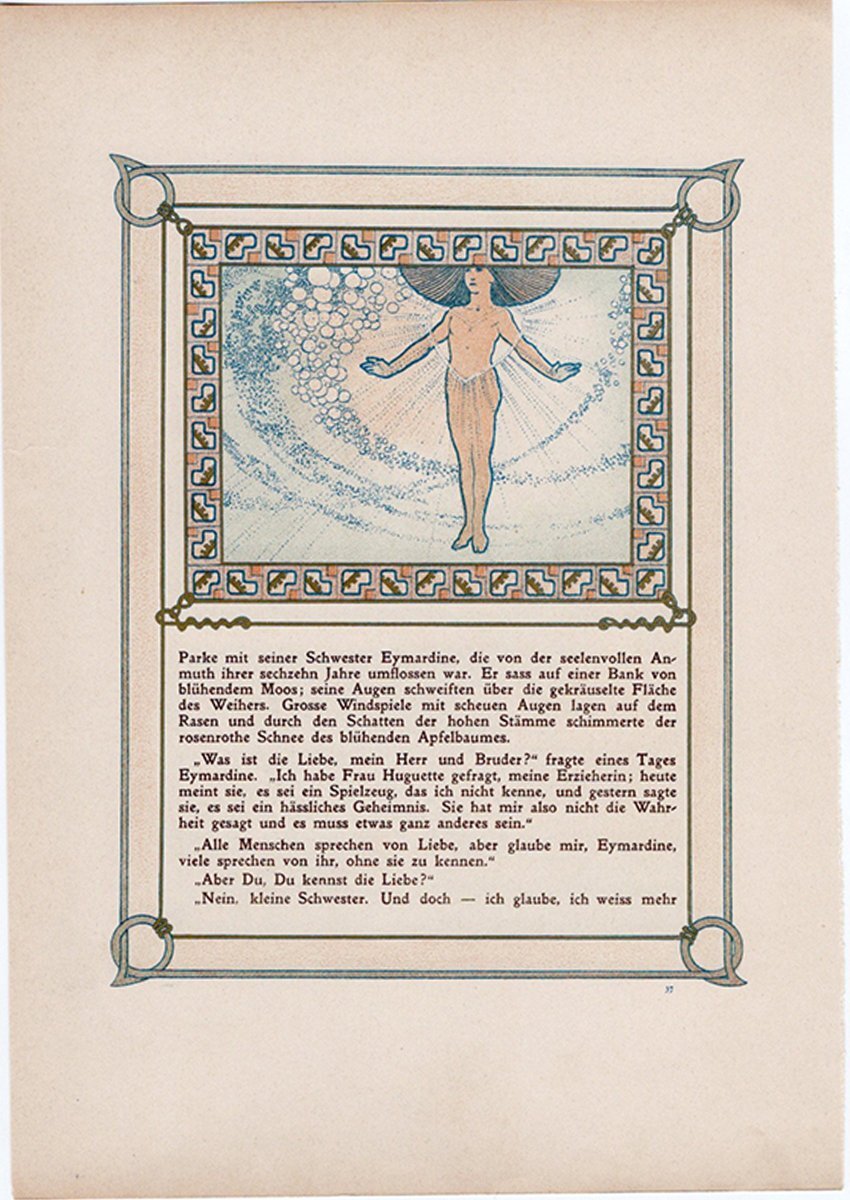 Parke mit seiner Schwester Eymardine, die von der seelenvollen An-
muth ihrer sechzehn Jahre umflossen war. Er sass auf einer Bank von
blühendem Moos; seine Augen schweiften über die gekräuselte Fläche
des Weihers. Grosse Windspiele mit scheuen Augen lagen auf dem
Rasen und durch den Schatten der hohen Stämme schimmerte der
rosenrothe Schnee des blühenden Apfelbaumes.
„Was ist die Liebe, mein Herr und Bruder?“ fragte eines Tages
Eymardine. „Ich habe Frau Huguette gefragt, meine Erzieherin; heute
meint sie, es sei ein Spielzeug, das ich nicht kenne, und gestern sagte
sie, es sei ein hässliches Geheimnis. Sie hat mir also nicht die Wahr-
heit gesagt und es muss etwas ganz anderes sein.“
„Alle Menschen sprechen von Liebe, aber glaube mir, Eymardine,
viele sprechen von ihr, ohne sie zu kennen.“
„Aber Du, Du kennst die Liebe?“
„Nein, kleine Schwester. Und doch — ich glaube, ich weiss mehr